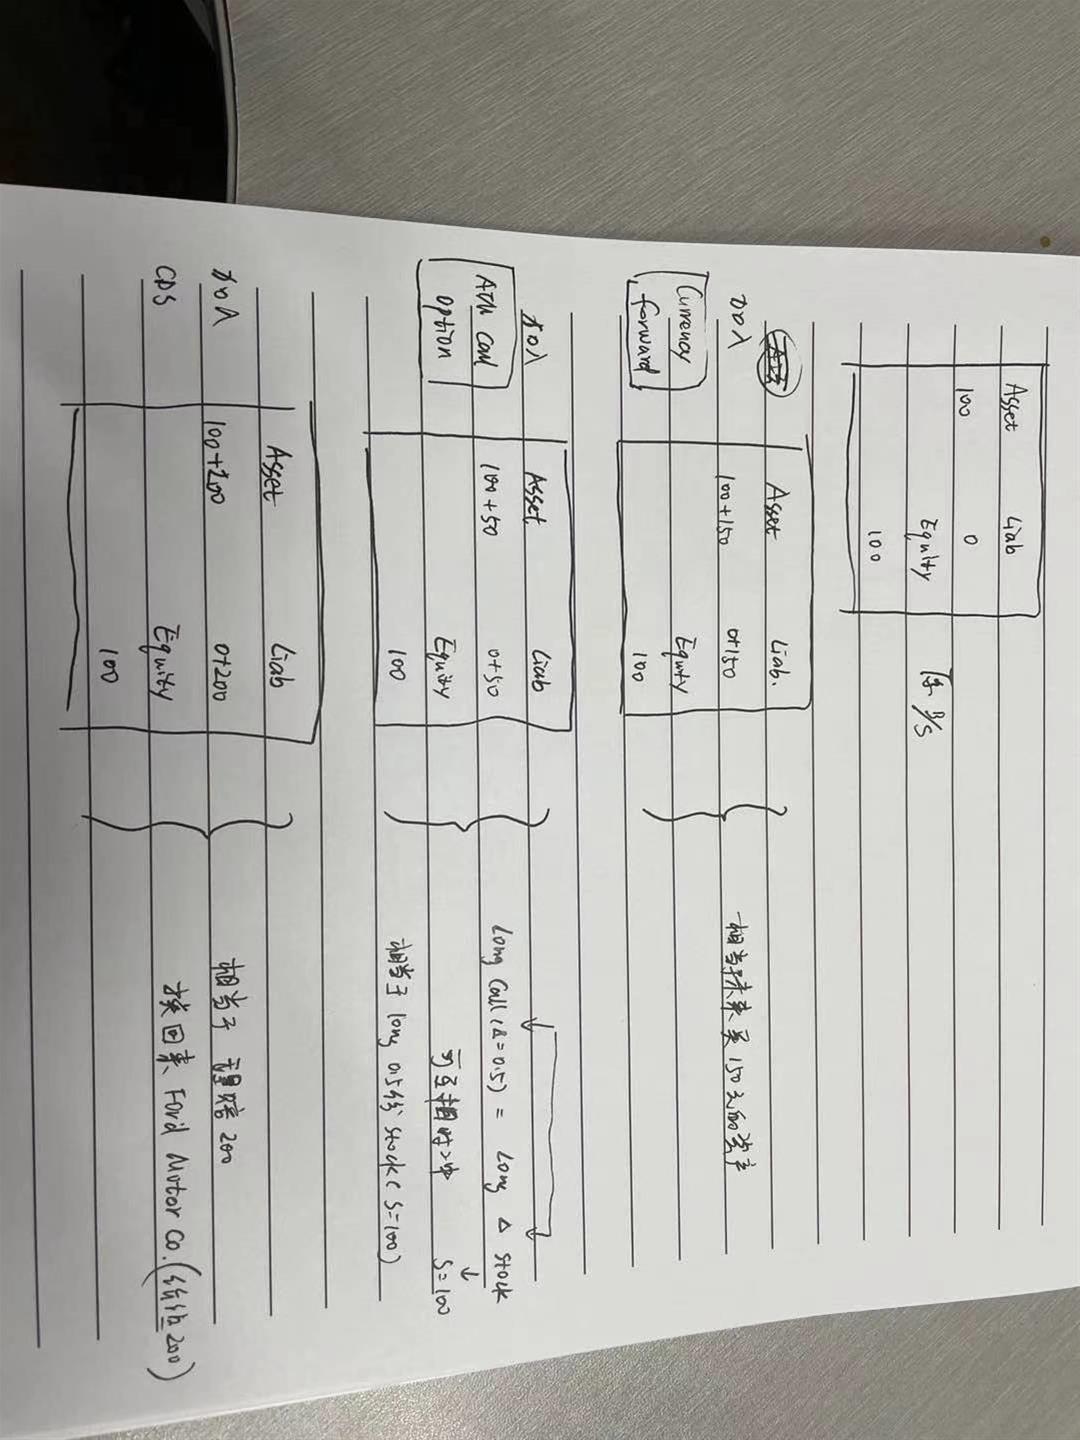 Asset Liab
100 0
Equity
100
原 B/S
加入
Currency forward
Asset Liab.
100+150 0+150
Equity
100
相当于未来买150元的资产
加入
ATM Call option
Asset Liab
100+50 0+50
Equity
100
Long Call (Δ=0.5) = Long Δ stock
可互相对冲 S=100
相当于 long 0.5份 stock (S=100)
加入
CDS
Asset Liab
100+200 0+200
Equity
100
相当于 理赔200
换回来 Ford Motor Co. (价值200)